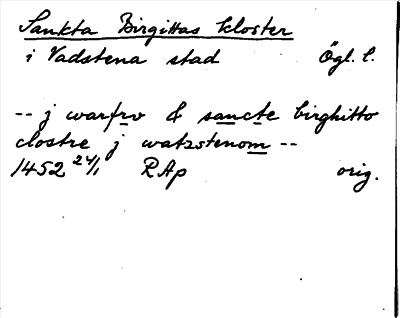 Sankta Birgittas kloster
i Vadstena stad Ögl. l.
-- j warfrv & sancte birghitto
clostre j watzstenom --
1452 24/1 RAp orig.